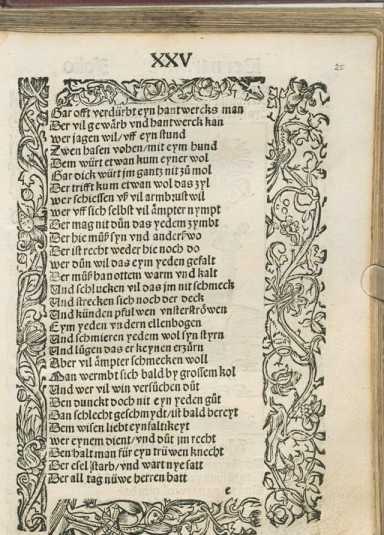 XXV
25
Gar offt verdürbt eyn hantwercks man
Der vil gewärb vnd hantwerck kan
wer jagen wil / vff eyn stund
Zwen hasen vohen / mit eym hund
Dem würt etwan kum eyner wol
Gar dick würt jm gantz nit zů mol
Der trifft kum etwan wol das zyl
wer schiessen vß vil armbrust wil
wer vff sich selbst vil ämpter nympt
Der mag nit důn das yedem zymbt
Der hie můß syn vnd anderßwo
Der ist recht weder hie noch do
wer důn wil das eym yeden gefalt
Der můß han ottem warm vnd kalt
Und schlucken vil das jm nit schmeck
Und strecken sich noch der deck
Und künden pfulwen vnsterströwen
Eym yeden vndern ellenbogen
Und schmieren yedem wol syn styrn
Und lůgen das er keynen erzürn
Aber vil ämpter schmecken woll
Man wermbt sich bald by grossem kol
Und wer vil win versůchen důt
Den dunckt doch nit eyn yeden gůt
Dan schlecht geschmydt / ist bald bereyt
Dem wisen liebt eynfaltikeyt
wer eynem dient / vnd důt jm recht
Den halt man für eyn trüwen knecht
Der esel starb / vnd wart nye satt
Der all tag nüwe herren hatt
e